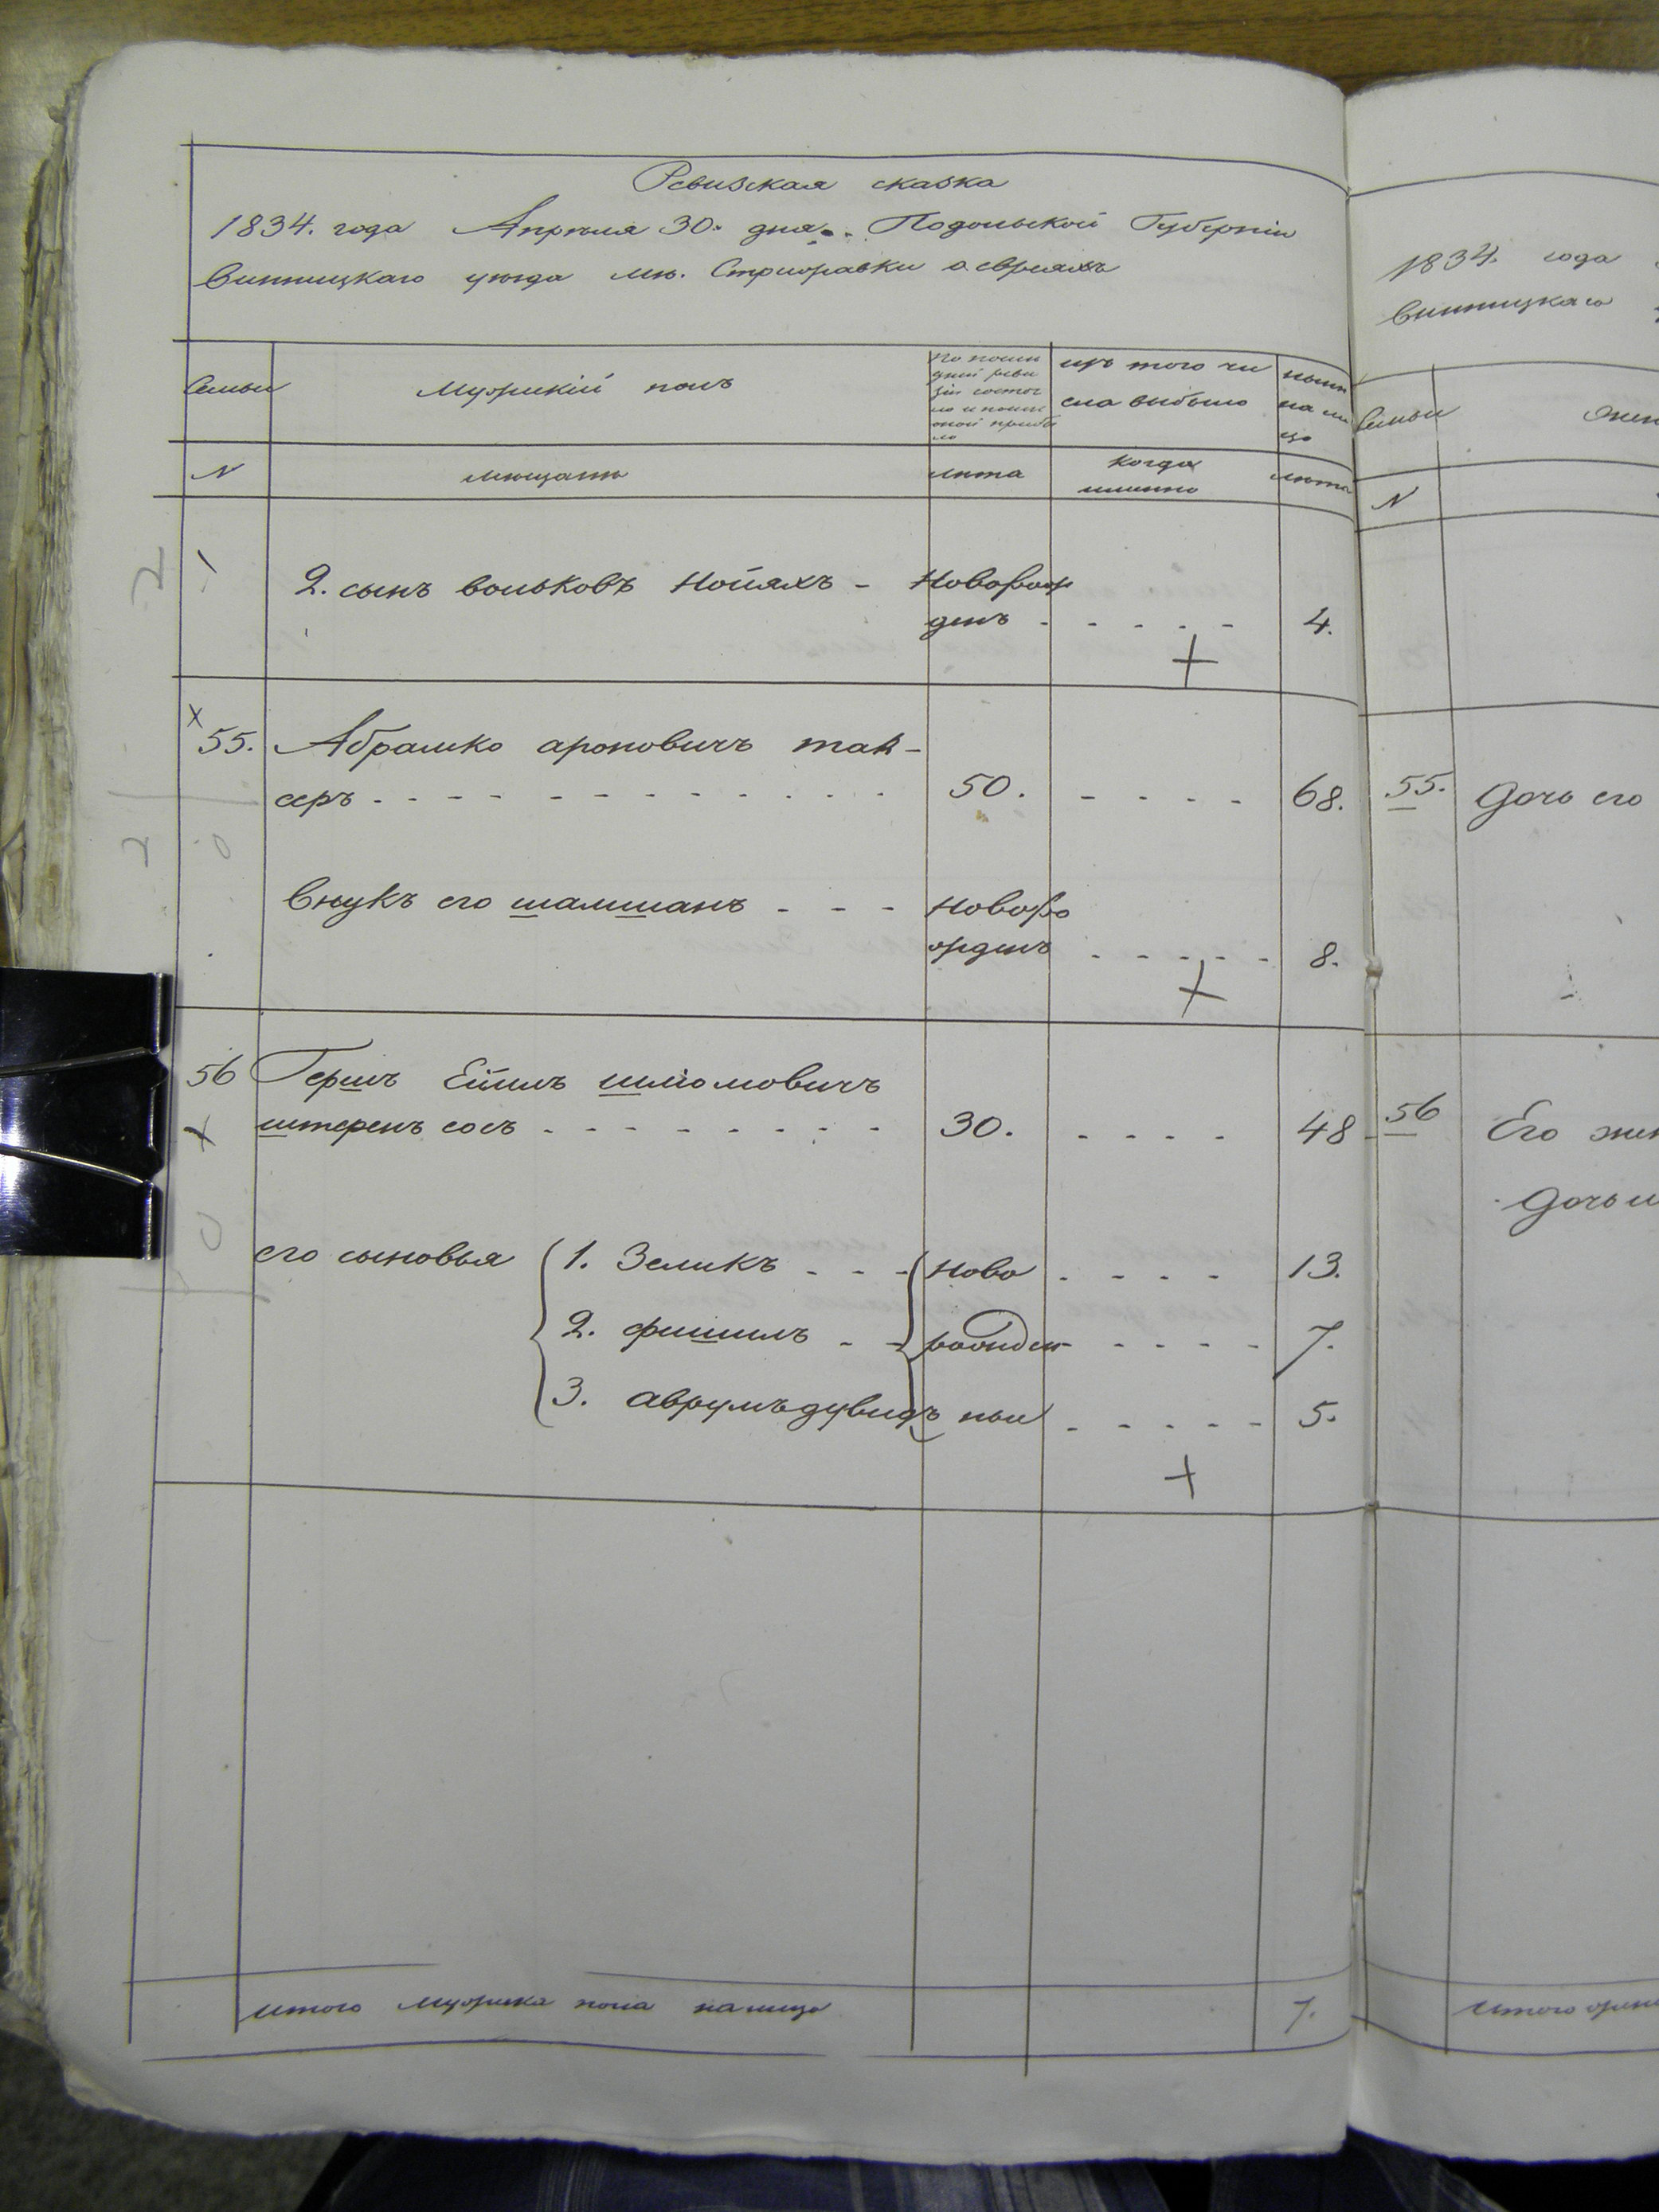 Ревизская сказка
1834. года Апреля 30. дня. Подольской Губерніи
Винницкаго уѣзда мѣ. Стрижавки о евреяхъ
Семьи
Мужскій полъ
По послѣ
дней реви
зіи состоя
ло и послѣ
оной прибы
ло
изъ того чи
сла выбыло
нынѣ
на ли
цо
N
мещане
лѣта
когда
именно
лѣта
2. сынъ вольковъ Нойяхъ - Новорож
денъ - - - - - 4.
55. Абрамко ароновичъ тан-
серъ - - - 50. - - - - 68.
внукъ его шамшанъ - - - Новоро
жденъ - - - - - 8.
56 Гершъ Ейзиль шліомовичъ
штеренъ сосъ - - - 30. - - - - 48
его сыновья 1. Зеликъ - - - ново - - - - 13.
2. фишиль - - рожден - - - - 7.
3. аврумъдувидъ ные - - - - - 5.
итого мужска пола на лицо 7.
1834. года
Винницкаго
Семьи
жен
N
55. Дочь его
56 Его жен
Дочь и
итого жен